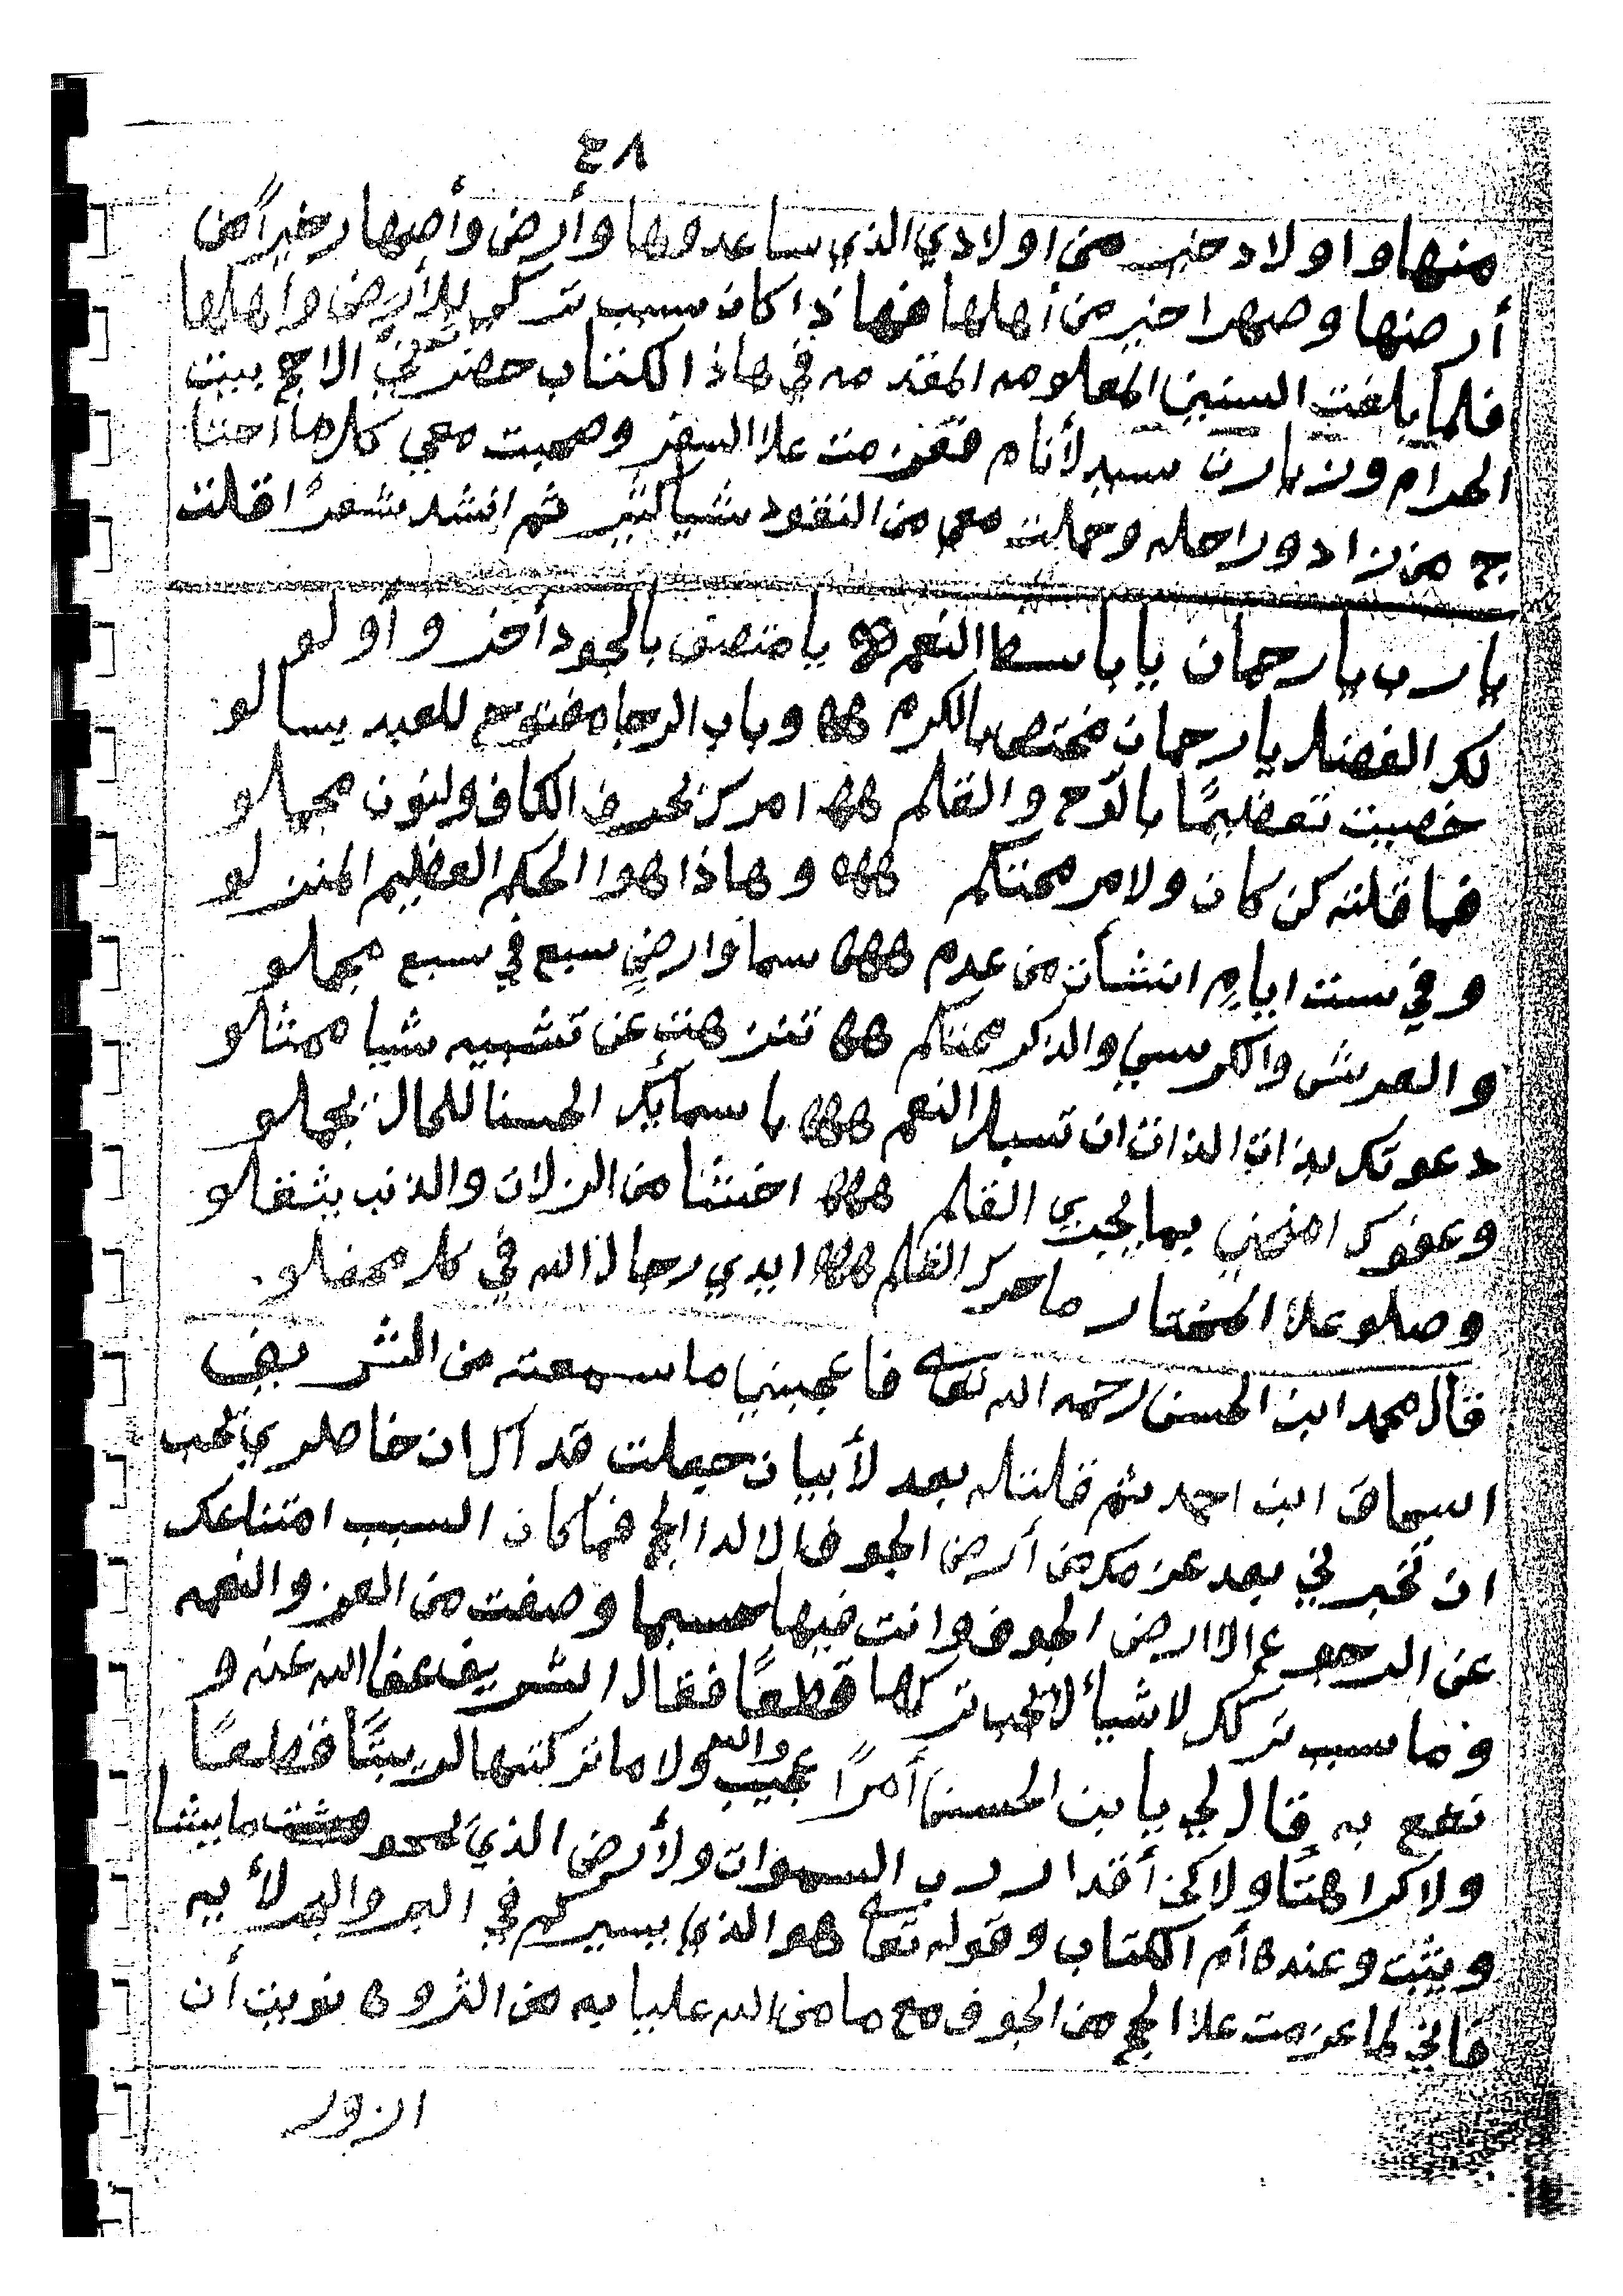 ٤٨
منها واولاد خير من اولادي الذي ساعدوها وأرض وأصهار خيراً من
أرضها وصهرا خير من أهلها فهاذا كان سبب تركي للأرض واهلها
فلما بلغت السنين المعلومه المقدمه في هاذا الكتاب حضرتني الا حج بيت
الحرام وزيارت سيد لأنام فعزمت علا السفر وصحبت معي كلما احتا
ج من زاد وراحله وحملت معي من النقود شيأ كثير ثم انشد شعرًا قلت
يارب يا رحمان يا باسط النعم يا متصف بالجود أخر وأولو
لك الفضل يا رحمان مختص بالكرم وباب الرجا مفتوح للعبد يسالو
خصيت تعظيمًا بالوّح والقلم امرك بحرف الكاف ولنون مجملو
فما قلته كن كان ولامر محتكم وهاذا هوا الحكم العظيم المنزلو
وفي ست ايام انشأت من عدم سما وارض سبع في سبع مجملو
والعرش والكرسي والذكر محتكم تنزهت عن تشبيه شيا ممثلو
دعوتك بذات الذات ان تسبل النعم باسمأيك الحسنا للحال يجملو
وعفوك امنحني بها يجري القلم اخشا من الزلات والذنب يثقلو
وصلو علا المختار ما حرك القلم ايدي رجال الله في كل محفلو
قال محمد ابن الحسن رحمه الله تعالى فاعجبني ما سمعته من الشريف
اسحاق ابن احمد ثم قلتله بعد لأبيات جعلت فداك ان خاطري يحب
ان تخبرني بعد عزمك من أرض الجوف الا لدا الحج فما كان السبب امتناعك
عن الرجوع الا ارض الجوف وانت فيها حسبما وصفت من العز والنعمه
وما سبب تركك لاشيأ لاتحب تركها قطعًا فقال الشريف عفا الله عنه و
نفع به قال لي يابن الحسن أمرًا عجيب والله ولا ما تركتها لريبتًا قطعًا
ولا كراهتًا ولاكن أقدار رب السموات ولأرض الذي يمحو مايشا
ويثبت وعنده أم الكتاب وقوله تعالى هو الذي يسيركم في البر والبحر لأيه
فاني لما عزمت علا الحج من الجوف مع ما من الله عليا به من الثروه نويت أن
ازور